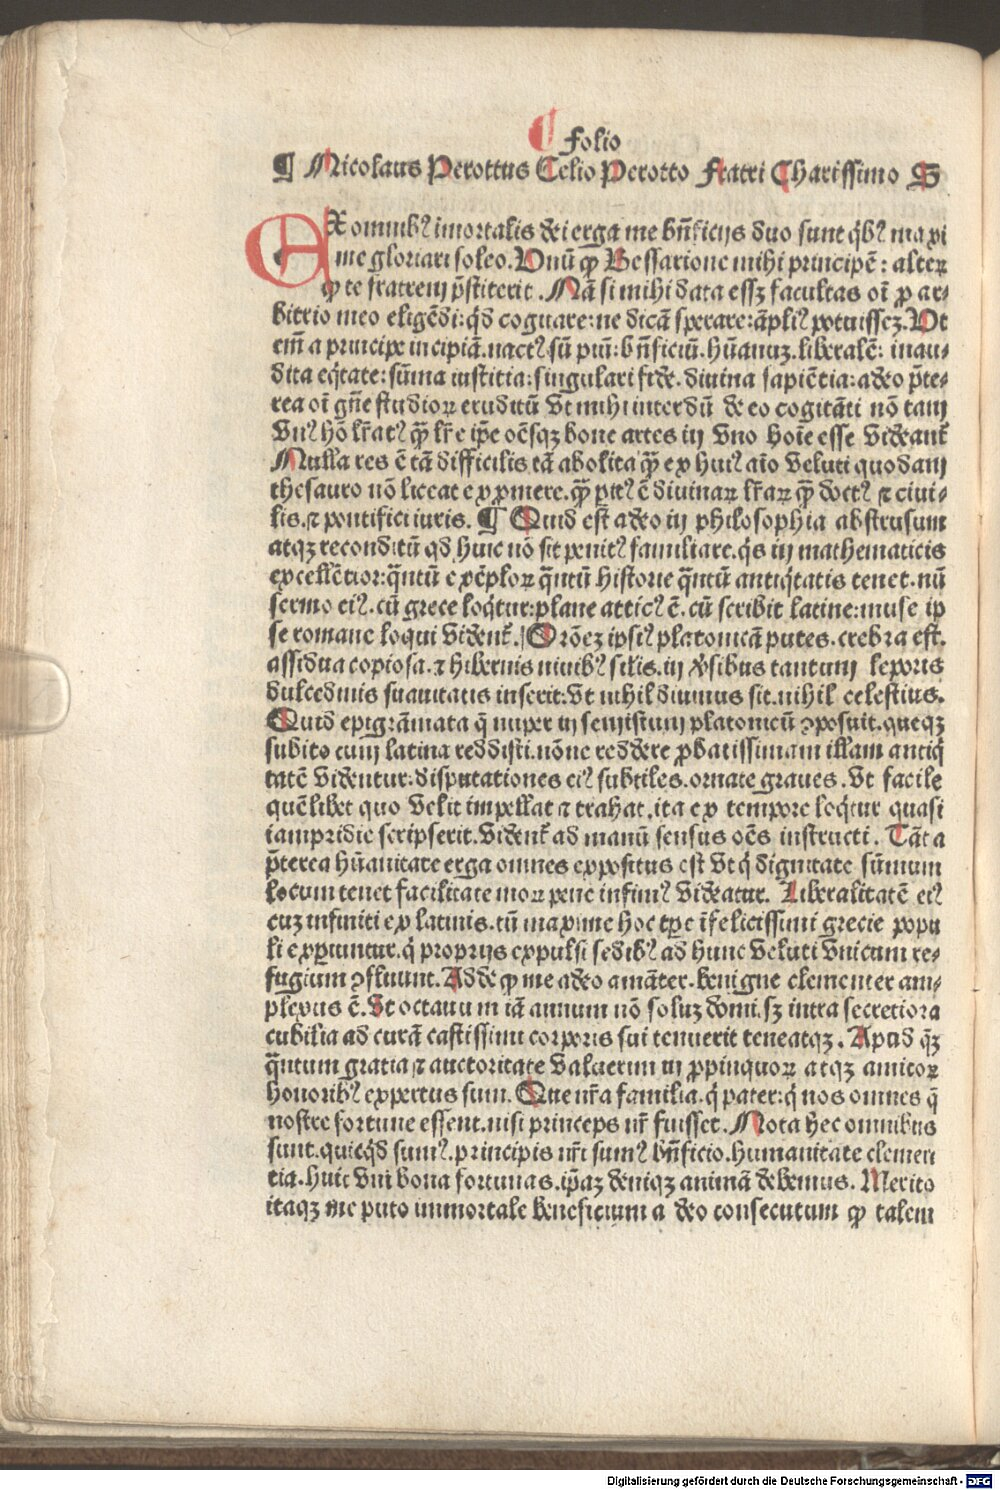 ¶ Folio
¶ Nicolaus Perottus Celio Perotto Fratri Charissimo S
EX omnibꝰ imortalis dei erga me bn̄ficijs duo sunt qͥbꝰ maxi
me gloriari soleo. Vnū ꝙ Bessarione mihi principē: alteꝝ
ꝙ te fratrem p̄stiterit. Nā si mihi data essꝫ facultas oī ꝓ ar-
bitrio meo eligēdi: qͥd cogitare: ne dicā sperare: āpliꝰ potuissez. Vt
em̄ a principe incipiā. nactꝰ sū piū: bn̄ficiū. hūanuꝫ. liberalē: inau-
dita eqͥtate: sūma iustitia: singulari fide. diuina sapiētia: adeo p̄te-
rea oī gn̄e studioꝝ eruditū Vt mihi interdū de eo cogitāti nō tam
Vnꝰ hō lr̄atꝰ qͣ̄ lr̄e ip̄e oēsqꝫ bone artes in Vno hoīe esse Videant᷑
Nulla res ē tā difficilis tā abolita qͣ̄ ex huiꝰ aīo Veluti quodam
thesauro nō liceat exꝓmere. qͣ̄ pitꝰ ē diuinaꝝ lr̄aꝝ qͣ̄ doctꝰ ⁊ ciui-
lis. ⁊ pontifici iuris. ¶ Quid est adeo in philosophia abstrusum
atqꝫ reconditū qd̄ huic nō sit penitꝰ familiare. qͥs in mathematicis
excellētior: qͣ̄tū exēploꝝ qͣ̄tū historie qͣ̄tū antiqͥtatis tenet. nū
sermo eiꝰ. cū grece loqͥtur: plane atticꝰ ē. cū scribit latine: muse ip
se romane loqui Vident᷑. Orōeꝫ ipsiꝰ platonicā putes. crebra est.
assidua copiosa. ⁊ hibernis niuibꝰ silis. in ꝟsibus tantum leporis
dulcedinis suauitatis inserit: Vt nihil diuinus sit. nihil celestius.
Quid epigrāmata q̄ nuper in semistium platonicū ꝯposuit. queqꝫ
subito cum latina reddisti. nōne reddere ꝓbatissimam illam antiqͥ
tatē Videntur: disputationes eiꝰ subtiles. ornate graues. Vt facile
quēlibet quo Velit impellat ⁊ trahat. ita ex tempore loqͥtur quasi
iampridie scripserit. Vident᷑ ad manū sensus oēs instructi. Tāta
p̄terea hūanitate erga omnes expositus est Vt qͥ dignitate sūmum
locum tenet facilitate moꝝ pene infimꝰ Videatur. Liberalitatē eiꝰ
cuꝫ infiniti ex latinis. tū maxime hoc tꝑe īfelicissimi grecie popu
li exꝑiuntur. qͥ proprijs expulsi sedibꝰ ad hunc Veluti Vnicum re-
fugium ꝯfluunt. Adde ꝙ me adeo amāter. benigne clementer am-
plexus ē. Vt octauum iā annum nō soluꝫ domi. sꝫ intra secretiora
cubilia ad curā castissimi corporis sui tenuerit teneatqꝫ. Apud qͣ̄
qͣ̄tum gratia ⁊ auctoritate Valuerim in ꝓpinquoꝝ atqꝫ amicoꝝ
honoribꝰ expertus sum. Que nr̄a familia. qͥ pater: qͥ nos omnes q̄
nostre fortune essent. nisi princeps nr̄ fuisset. Nota hec omnibus
sunt. quicqͥd sumꝰ. principis nr̄i sumꝰ bn̄ficio. humanitate clemen
tia. huic Vni bona fortunas. ip̄aꝫ deniqꝫ animā debemus. Merito
itaqꝫ me puto immortale beneficium a deo consecutum ꝙ talem
Digitalisierung gefördert durch die Deutsche Forschungsgemeinschaft - DFG